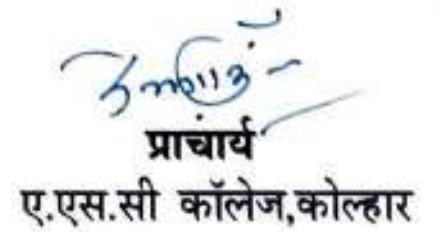 प्राचार्य
ए.एस.सी कॉलेज,कोल्हार